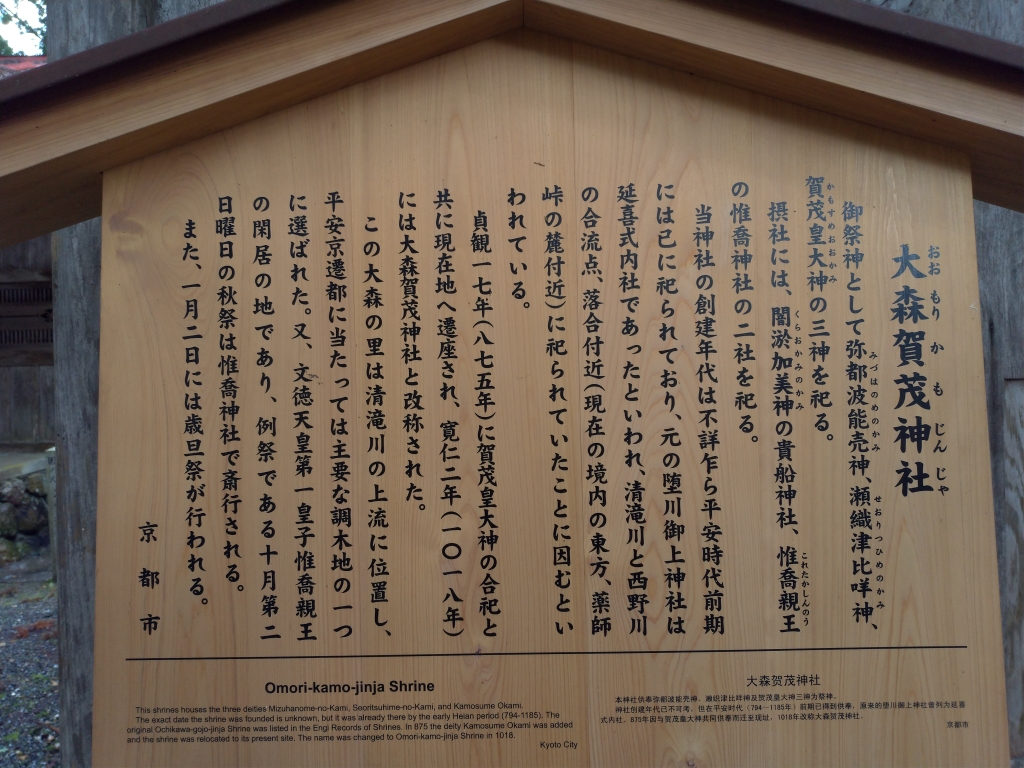 大森賀茂神社
おおもりかもじんじゃ
御祭神として弥都波能売神、瀬織津比咩神、
みづはのめのかみ
せおりつひめのかみ
賀茂皇大神の三神を祀る。
かもすめおおかみ
摂社には、闇淤加美神の貴船神社、惟喬親王
くらおかみのかみ
これたかしんのう
の惟喬神社の二社を祀る。
当神社の創建年代は不詳乍ら平安時代前期
には已に祀られており、元の堕川御上神社は
延喜式内社であったといわれ、清滝川と西野川
の合流点、落合付近(現在の境内の東方、薬師
峠の麓付近)に祀られていたことに因むとい
われている。
貞観一七年(八七五年)に賀茂皇大神の合祀と
共に現在地へ遷座され、寛仁二年(一〇一八年)
には大森賀茂神社と改称された。
この大森の里は清滝川の上流に位置し、
平安京遷都に当たっては主要な調木地の一つ
に選ばれた。又、文徳天皇第一皇子惟喬親王
の閑居の地であり、例祭である十月第二
日曜日の秋祭は惟喬神社で斎行される。
また、一月二日には歳旦祭が行われる。
京都市
Omori-kamo-jinja Shrine
This shrines houses the three deities Mizuhanome-no-Kami, Seoritsuhime-no-Kami, and Kamosume Okami.
The exact date the shrine was founded is unknown, but it was already there by the early Heian period (794-1185). The
original Ochikawa-gojo-jinja Shrine was listed in the Engi Records of Shrines. In 875 the deity Kamosume Okami was added
and the shrine was relocated to its present site. The name was changed to Omori-kamo-jinja Shrine in 1018.
Kyoto City
大森贺茂神社
本神社供奉弥都波能売神、瀬织津比咩神及贺茂皇大神三神为祭神。
神社创建年代已不可考，但在平安时代（794－1185年）前期已得到供奉，原来的堕川御上神社曾列为延喜
式内社。875年因与贺茂皇大神共同供奉而迁至现址，1018年改称大森贺茂神社。
京都市